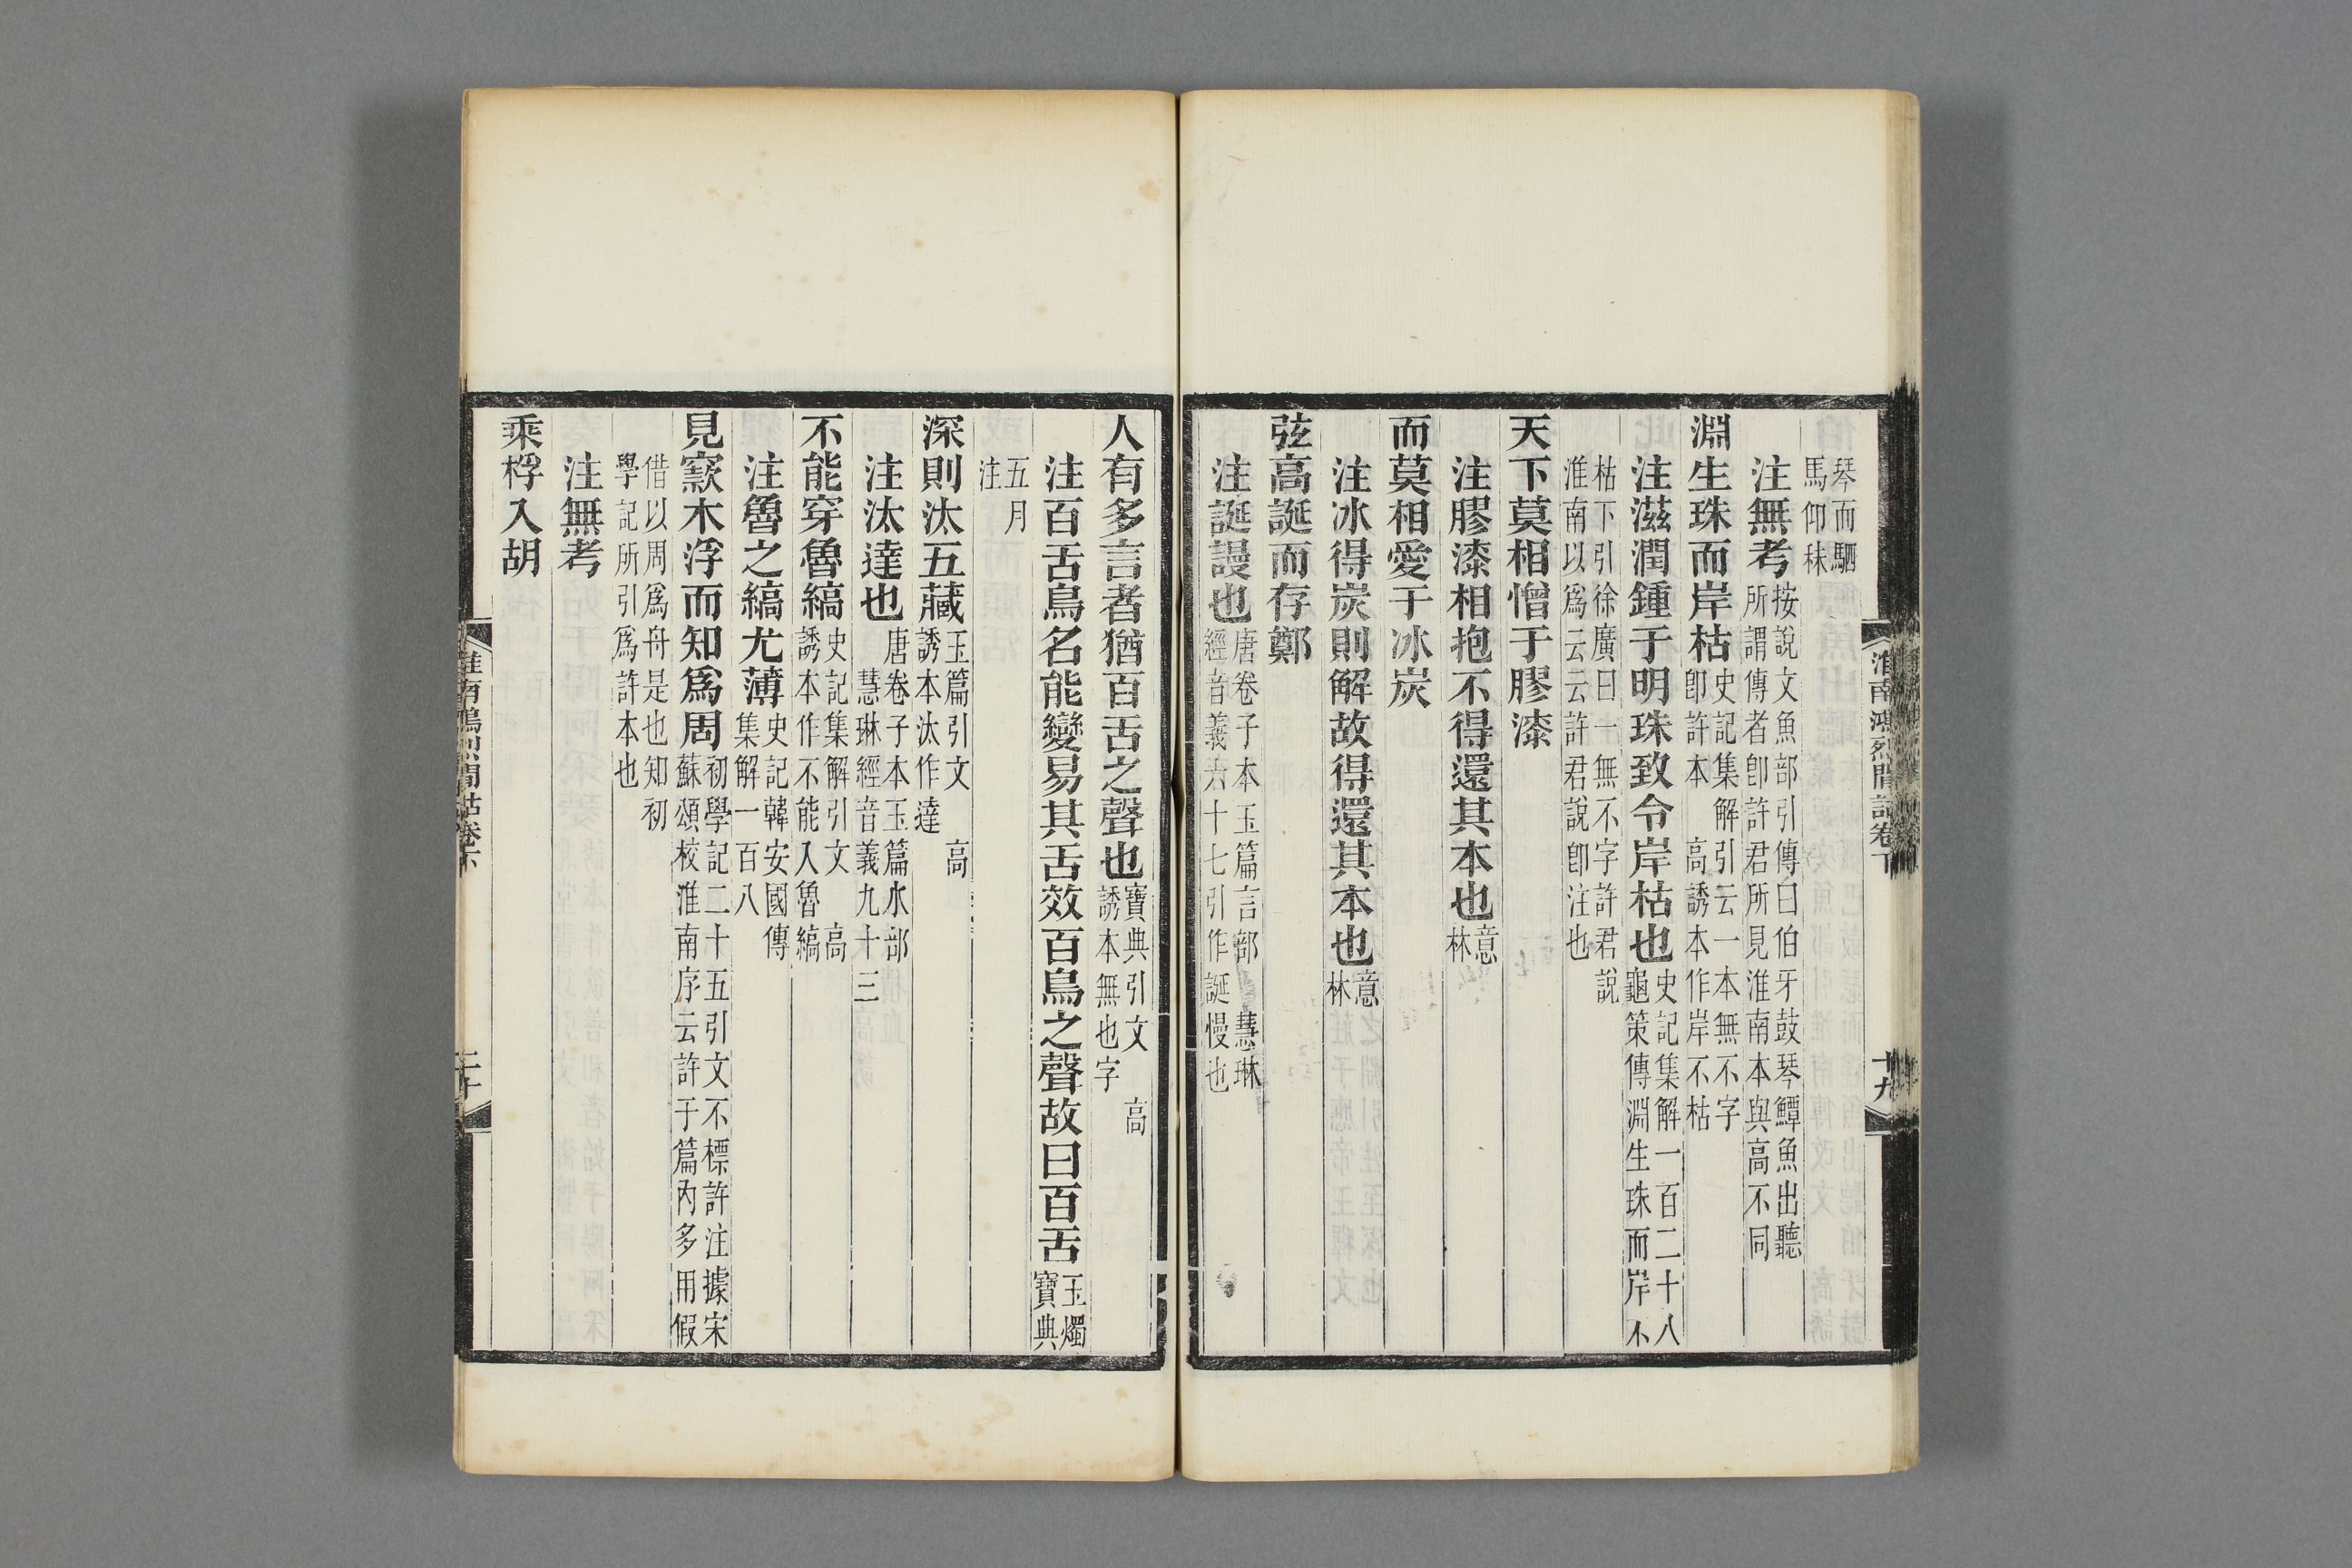 琴而駟
馬仰秣
注無考按說文魚部引傳曰伯牙鼓琴鱏魚出聽
所謂傳者卽許君所見淮南本與高不同
淵生珠而岸枯史記集解引云一本無不字
卽許本 高誘本作岸不枯
注滋潤鍾于明珠致令岸枯也史記集解一百二十八
龜策傳淵生珠而岸不
枯下引徐廣曰一無不字許君說
淮南以爲云云許君說卽注也
天下莫相憎于膠漆
注膠漆相抱不得還其本也意
林
而莫相愛于冰炭
注冰得炭則解故得還其本也意
林
弦高誕而存鄭
注誕謾也唐卷子本玉篇言部 慧琳
經音義六十七引作誕慢也
淮南鴻烈閒詁卷下
十九
人有多言者猶百舌之聲也寶典引文 高
誘本無也字
注百舌鳥名能變易其舌效百鳥之聲故曰百舌玉燭
寶典
五月
注
深則汰五藏玉篇引文 高
誘本汰作達
注汰達也唐卷子本玉篇水部
慧琳經音義九十三
不能穿魯縞史記集解引文 高
誘本作不能入魯縞
注魯之縞尤薄史記韓安國傳
集解一百八
見窾木浮而知爲周初學記二十五引文不標許注據宋
蘇頌校淮南序云許于篇內多用假
借以周爲舟是也知初
學記所引爲許本也
注無考
乘桴入胡
淮南鴻烈閒詁卷下
二十